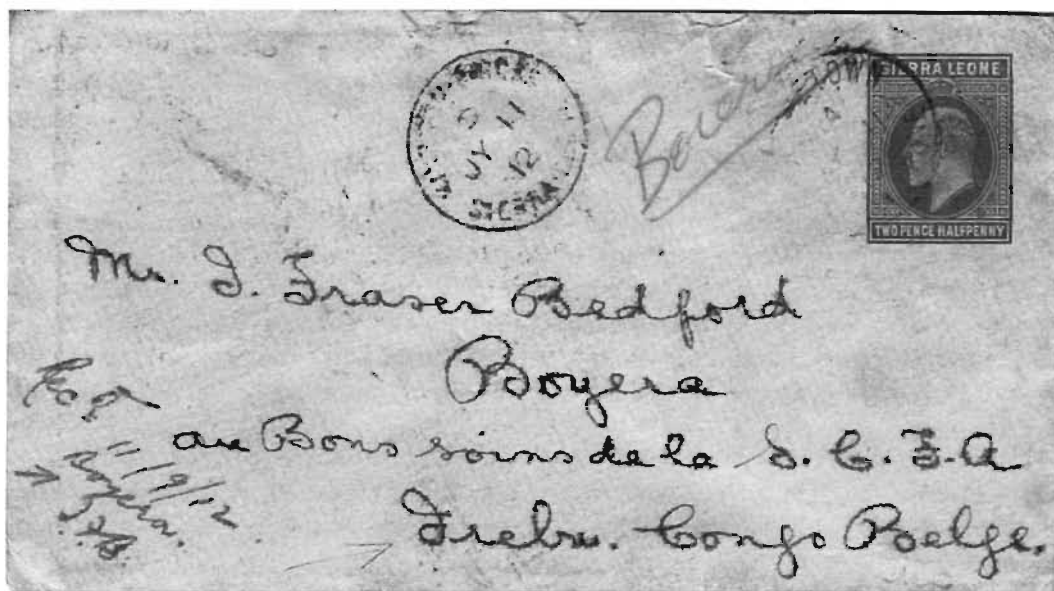 SIERRA LEONE
TWO PENCE HALFPENNY
JY 11
12
SIERRA
Mr. J. Fraser Bedford
Boyera
au Bons soins de la S. C. F. A
Irebu. Congo Belge.
11/9/12
Boyera.
J.F.B.